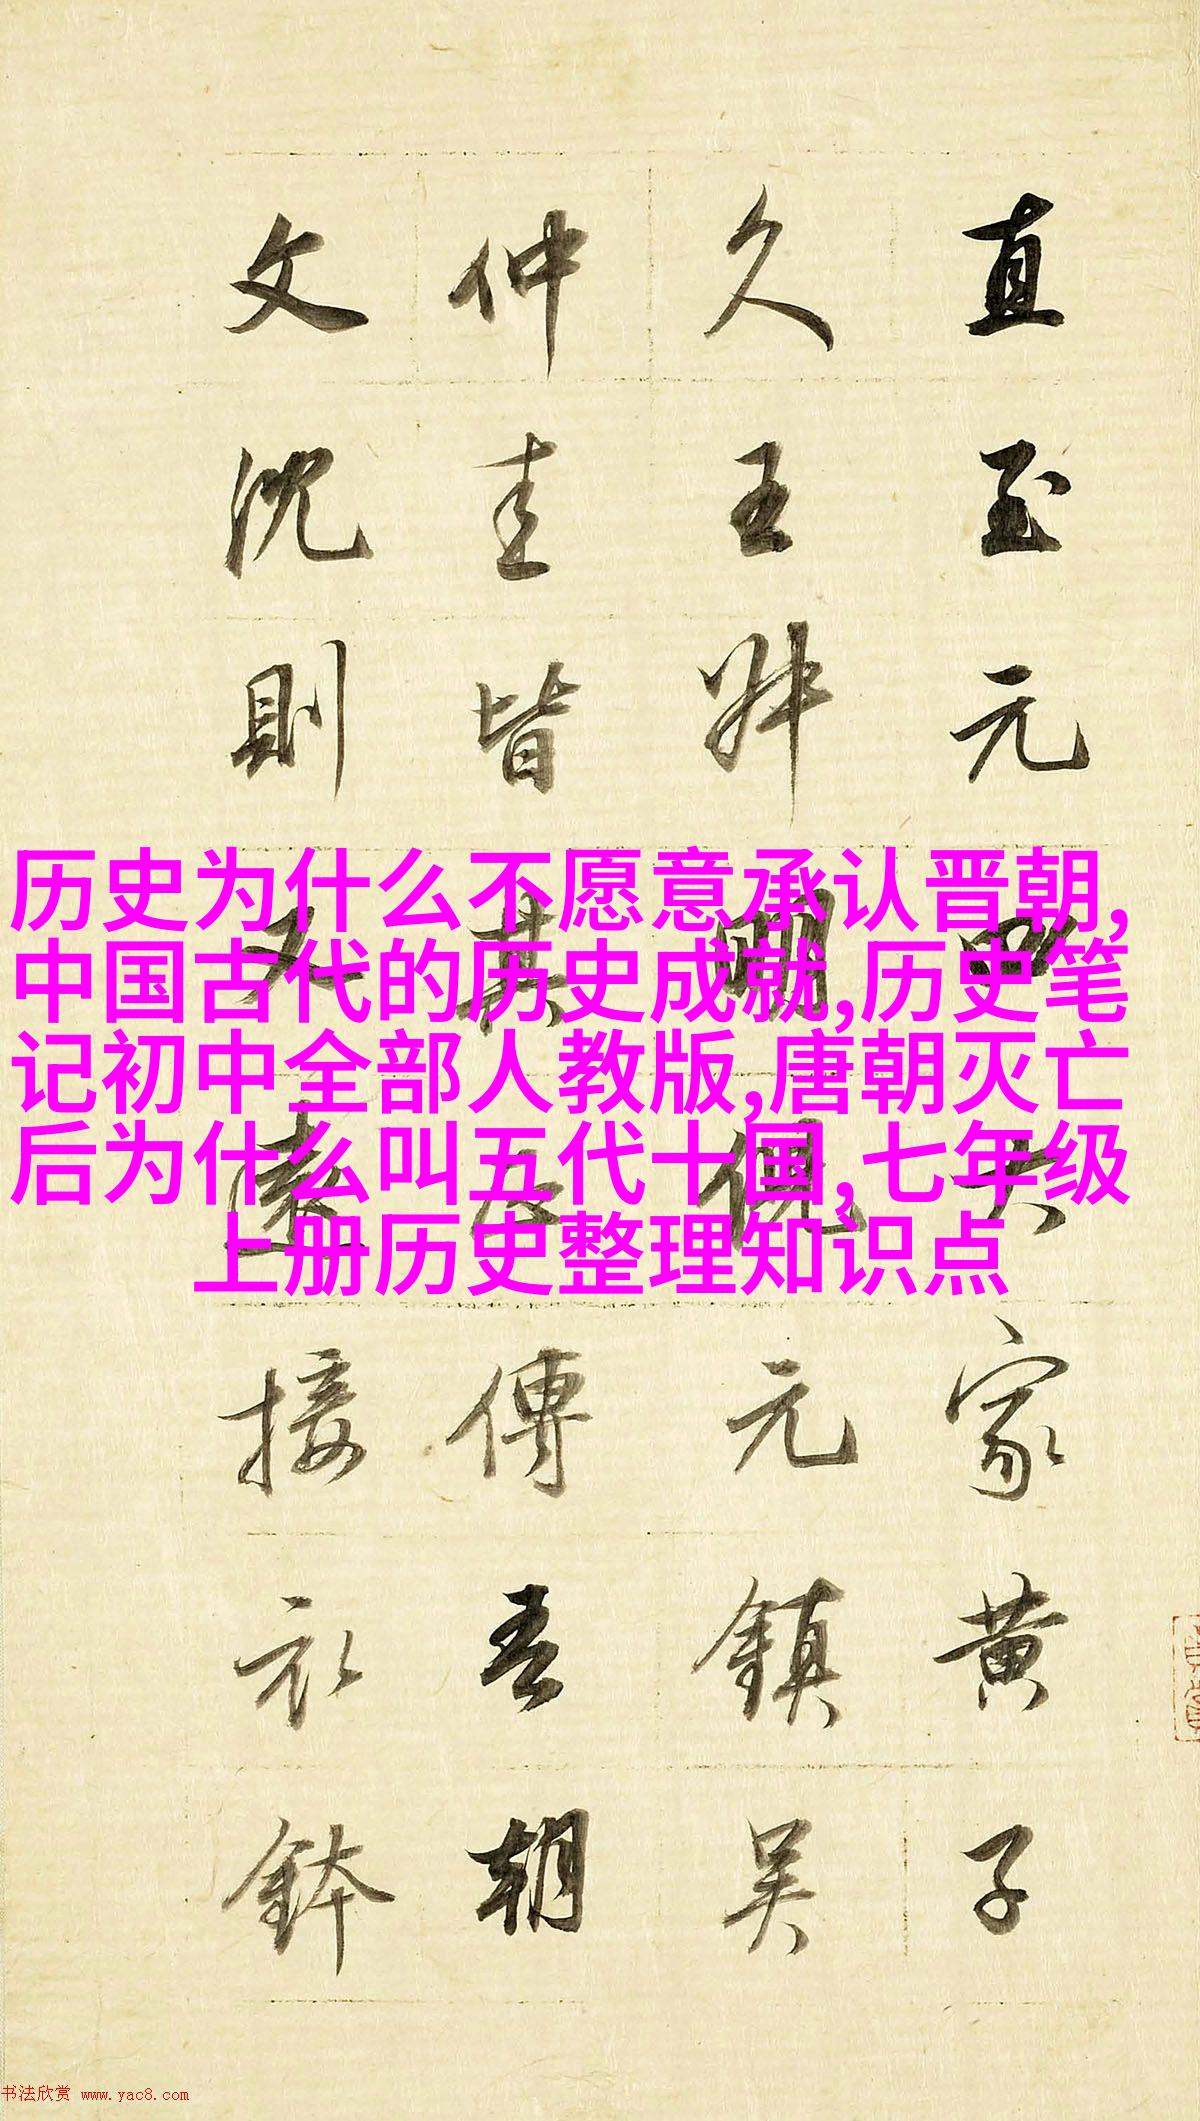 直至元四大家黄子
久王叔明倪元鎮吴
仲圭皆其正傳吾朝
文沈則又遠接衣鉢
历史为什么不愿意承认晋朝,
中国古代的历史成就,历史笔
记初中全部人教版,唐朝灭亡
后为什么叫五代十国,七年级
上册历史整理知识点
书法欣赏 www.yac8.com